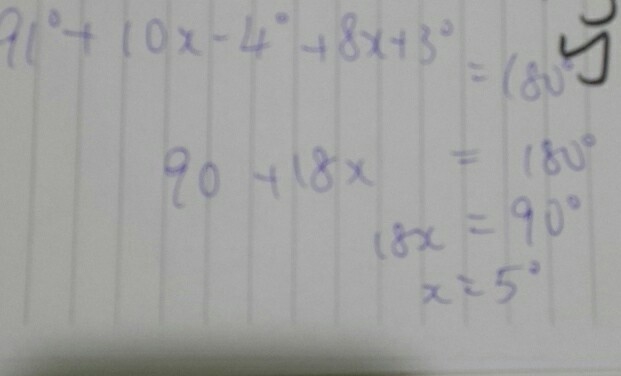 91° + 10x - 4° + 8x + 3° = 180°
90 + 18x = 180°
18x = 90°
x = 5°